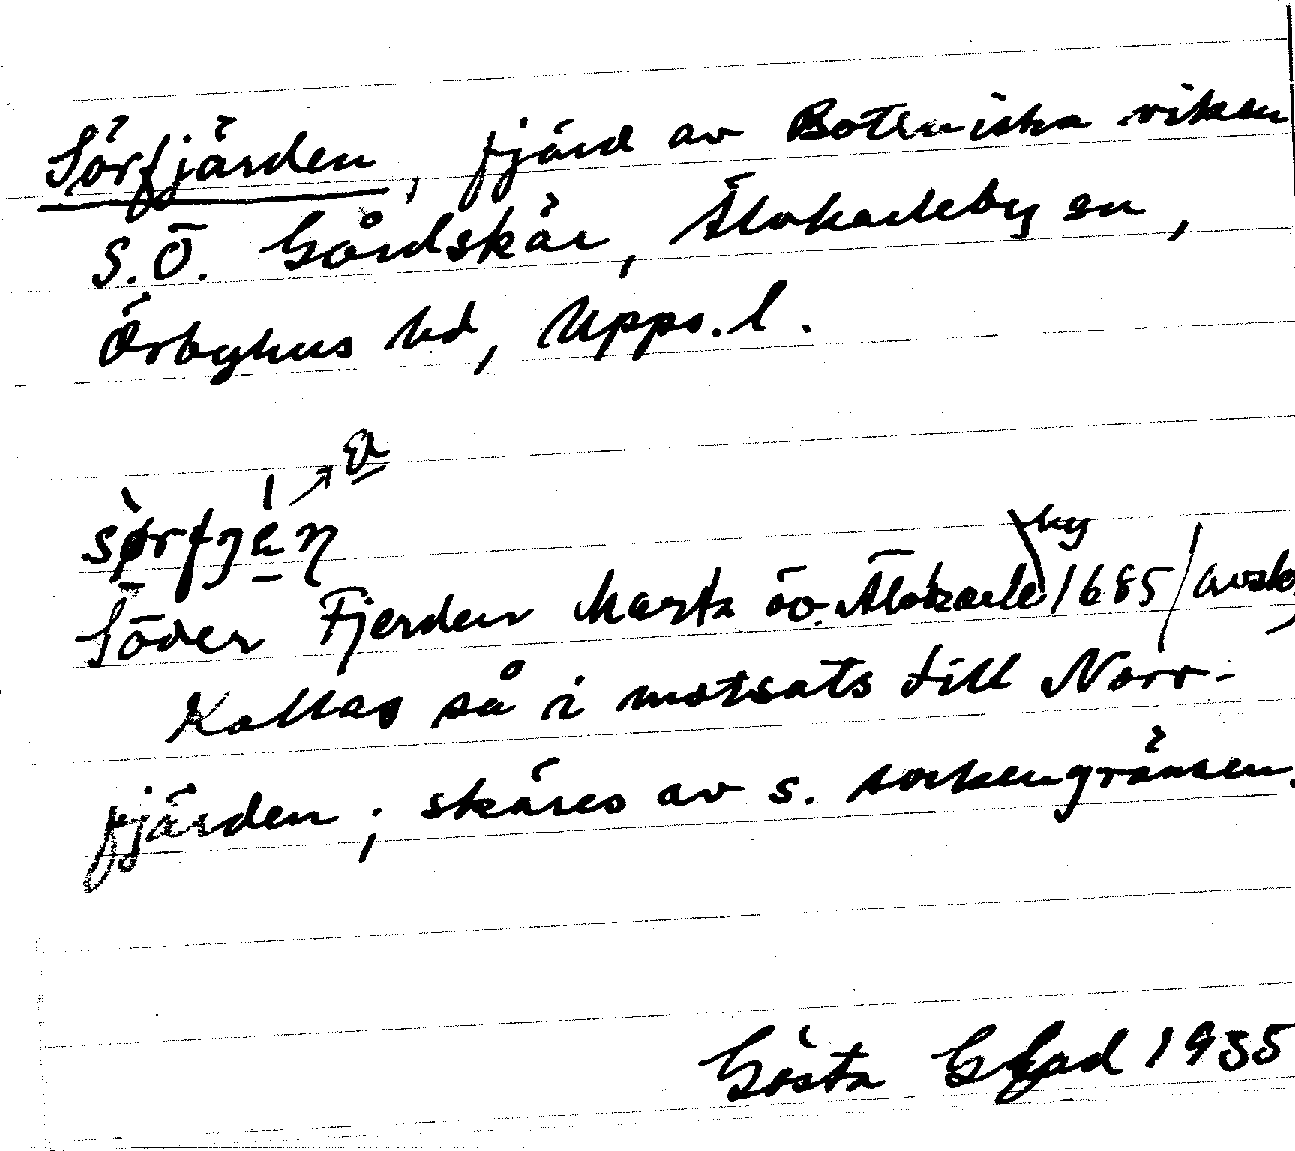 Sörfjärden, fjärd av Bottniska viken
S.Ö. Gårdskär, Älvkarleby sn,
Örbyhus hd, Upps. l.
sørfjän
Söder Fjerden Karta öv. Älvkarleby 1685/avskr,
Kallas så i motsats till Norr-
fjärden; skäres av s. sockengränsen.
Gösta 1935